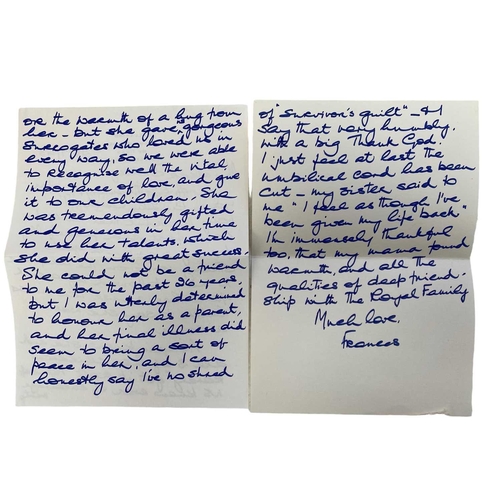 or the warmth of a hug from
her - but she gave us gorgeous
surrogates who loved us in
every way, so we were able
to recognise well the vital
importance of love, and give
it to our children. She
was tremendously gifted
and generous in her time
to use her talents, which
she did with great success.
She could not be a friend
to me for the past 26 years,
but I was utterly determined
to honour her as a parent,
and her final illness did
seem to bring a sort of
peace in her, and I can
honestly say I've no shred
of "survivor's guilt" - & I
say that very humbly,
with a big Thank God!
I just feel at last the
umbilical cord has been
cut - my sister said to
me "I feel as though I've
been given my life back"
I'm immensely thankful
too, that my mama found
warmth, and all the
qualities of deep friend-
ship with the Royal Family
Much love,
Frances